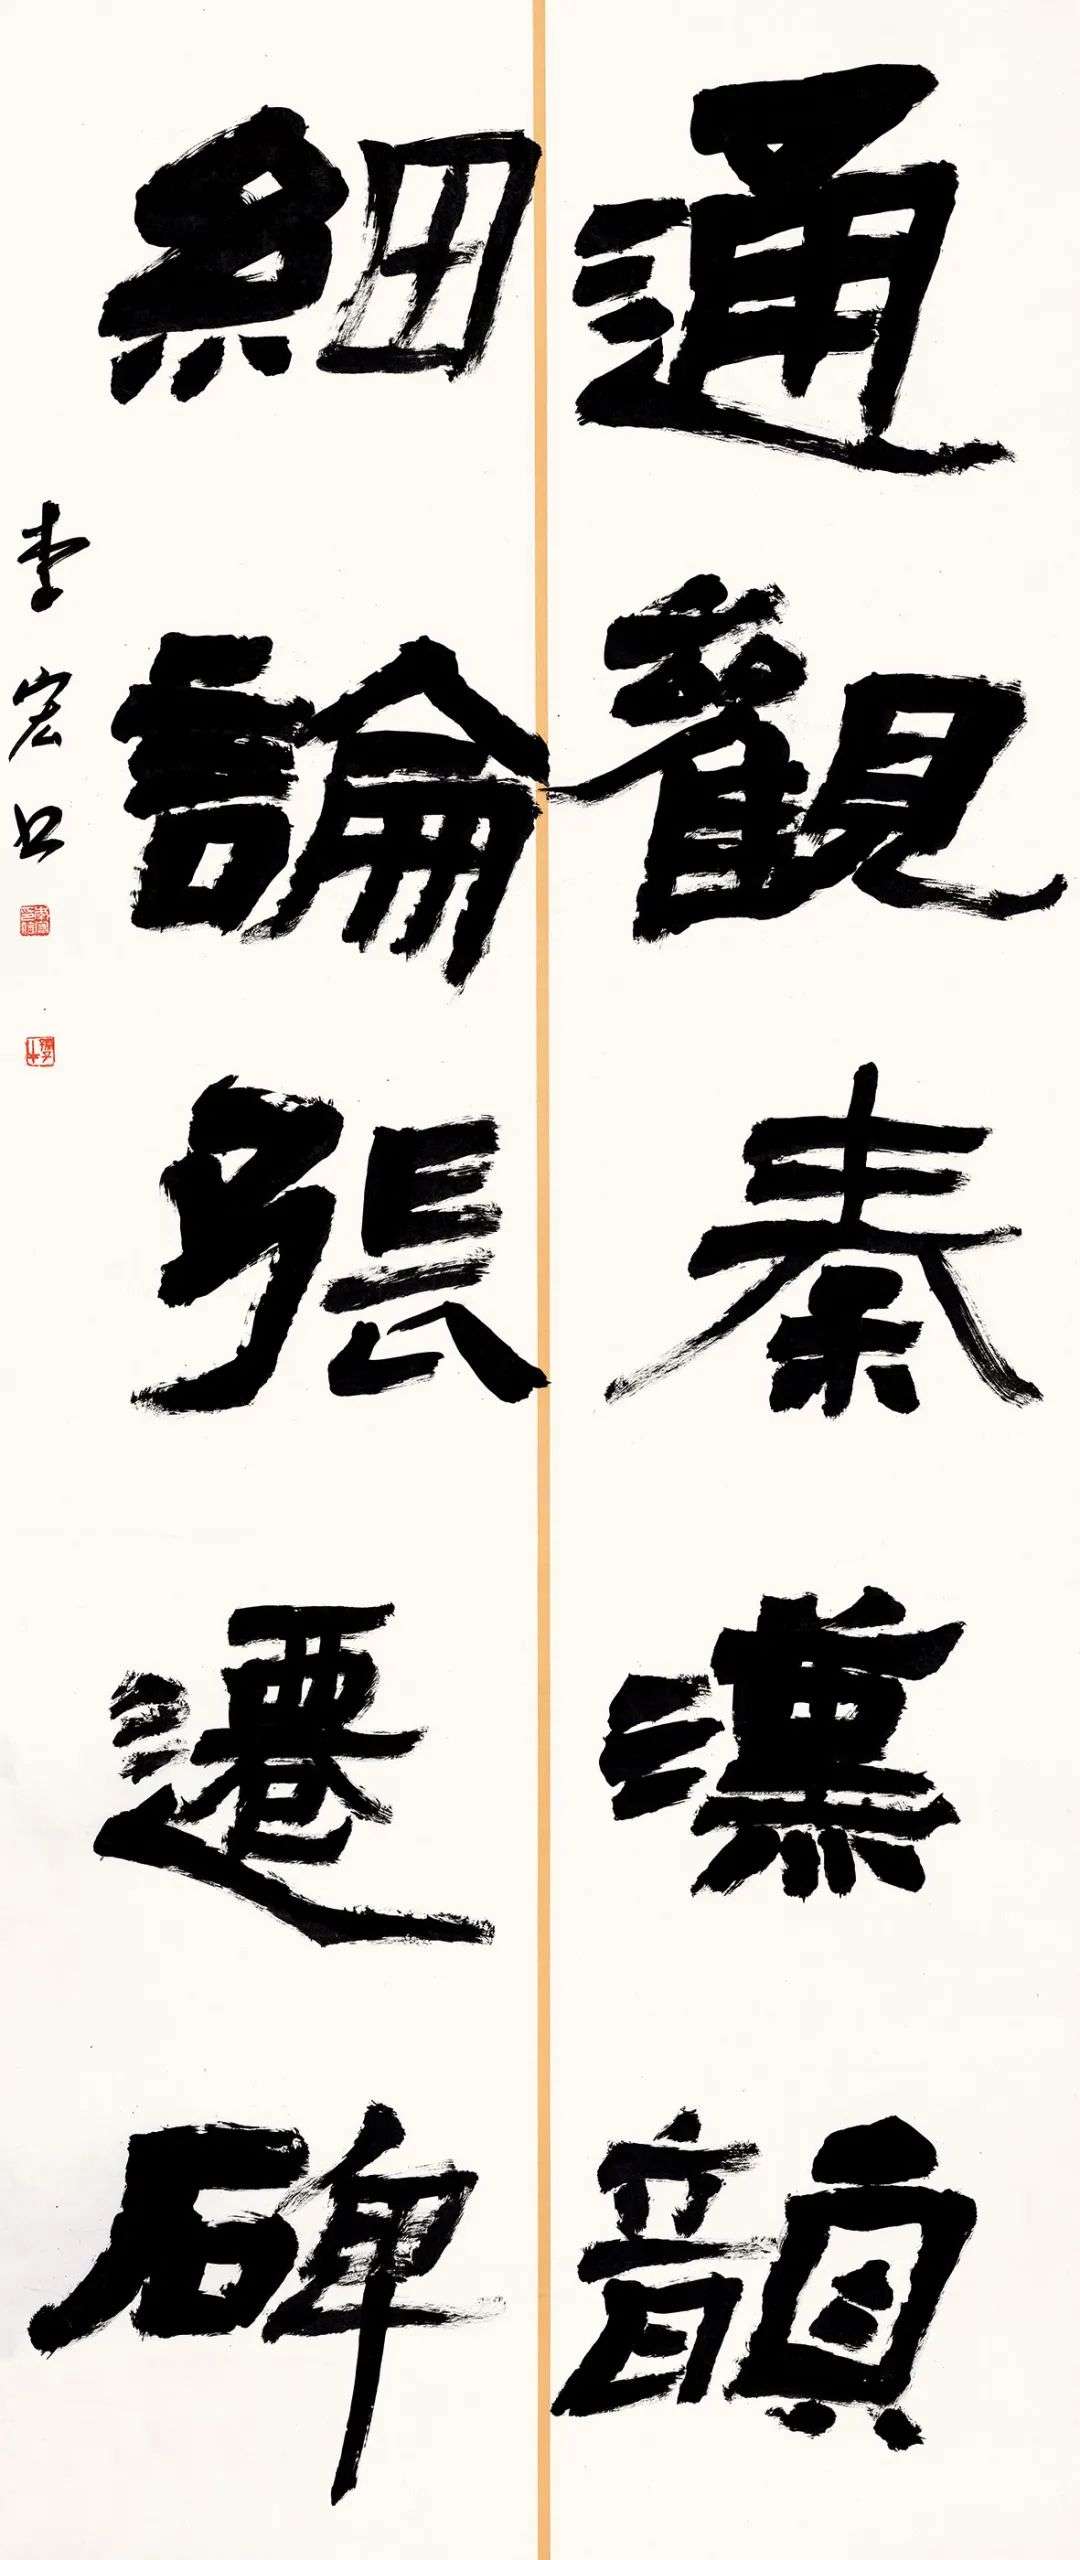 通觀秦漢韻
細論張遷碑
李宏书